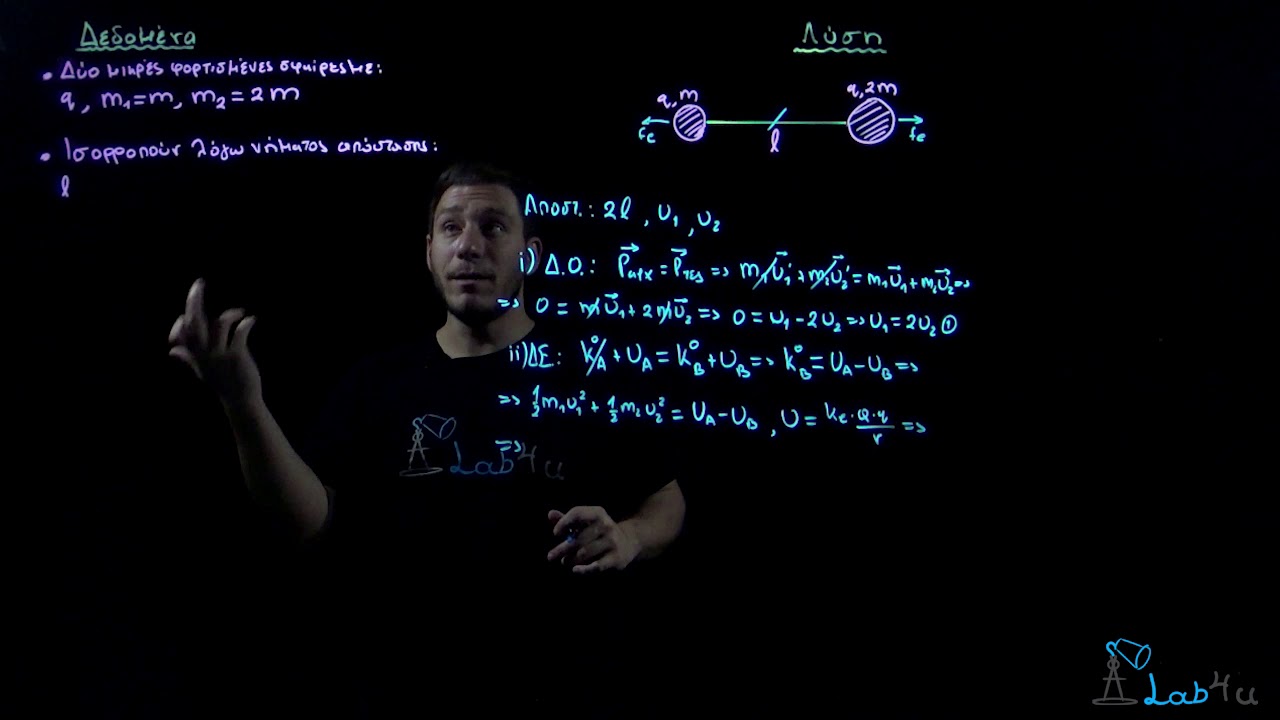 Δεδομένα
• Δύο μικρές φορτισμένες σφαίρες με:
q, m₁=m, m₂=2m
• Ισορροπούν λόγω νήματος απόστασης:
l
Λύση
q,m q,2m
Fe l Fe
Αποστ.: 2l, υ₁, υ₂
i) Δ.Ο.: P⃗αρχ = P⃗τελ => m₁υ⃗₁' + m₂υ⃗₂' = m₁υ⃗₁ + m₂υ⃗₂ =>
=> 0 = mυ⃗₁ + 2mυ⃗₂ => 0 = υ₁ - 2υ₂ => υ₁ = 2υ₂ ①
ii) ΔΕ: K⁰A + UA = K⁰B + UB => K⁰B = UA - UB =>
=> ½m₁υ₁² + ½m₂υ₂² = UA - UB, U = ke·Q·q/r =>
=>
Lab4u
Lab4u